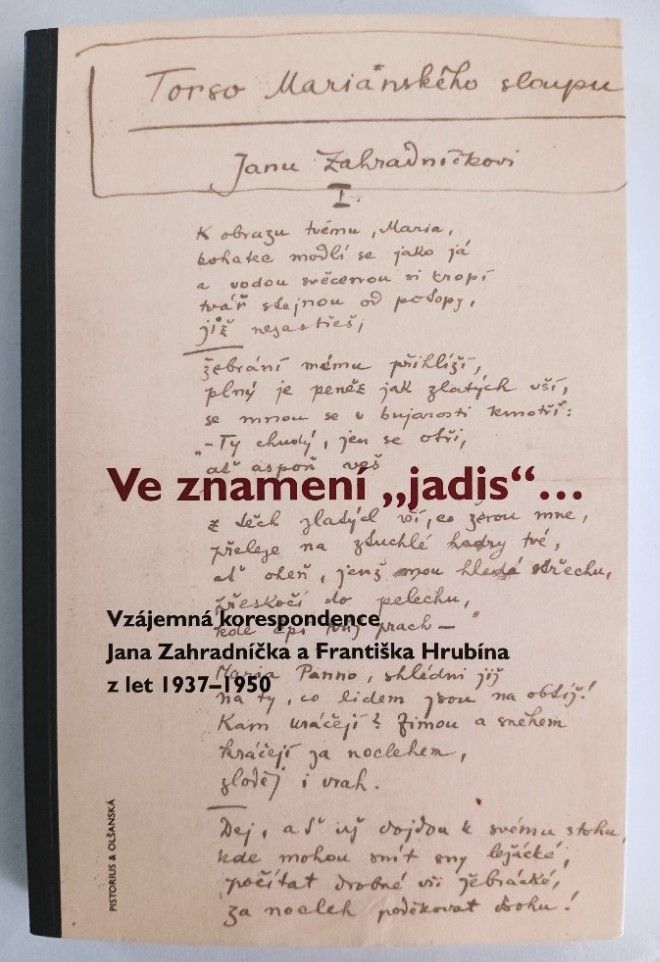 Torso Mariánského sloupu
Janu Zahradníčkovi
I.
K obrazu tvému, Maria,
boháč modlí se jako já
a vodou svěcenou si kropí
tvář stejnou od potopy,
již nezastřeš,
žebrání mému přihlíží,
plný je peněz jak zlatých vší,
se mnou se v bujarosti kmotří:
„-Ty chudý, jen se otři,
ať aspoň veš
Ve znamení „jadis“...
z těch zlatých vší, co žerou mne,
přeleze na ztuchlé hadry tvé,
ať oheň, jenž mou hledá střechu,
přeskočí do pelechu,
kde spí tvůj prach —“
Vzájemná korespondence
Jana Zahradníčka a Františka Hrubína
z let 1937–1950
Maria Panno, shlédni již
na ty, co lidem jsou na obtíž!
Kam kráčejí? Zimou a sněhem
kráčejí za noclehem,
zloděj i vrah.
Dej, ať již dojdou k svému stohu,
kde mohou snít sny ležácké,
počítat drobné vši žebrácké,
za nocleh poděkovat Bohu!
PISTORIUS & OLŠANSKÁ